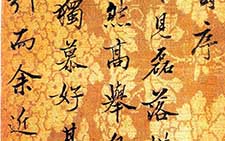 序
見磊落
然高舉
獨慕好其
而余近